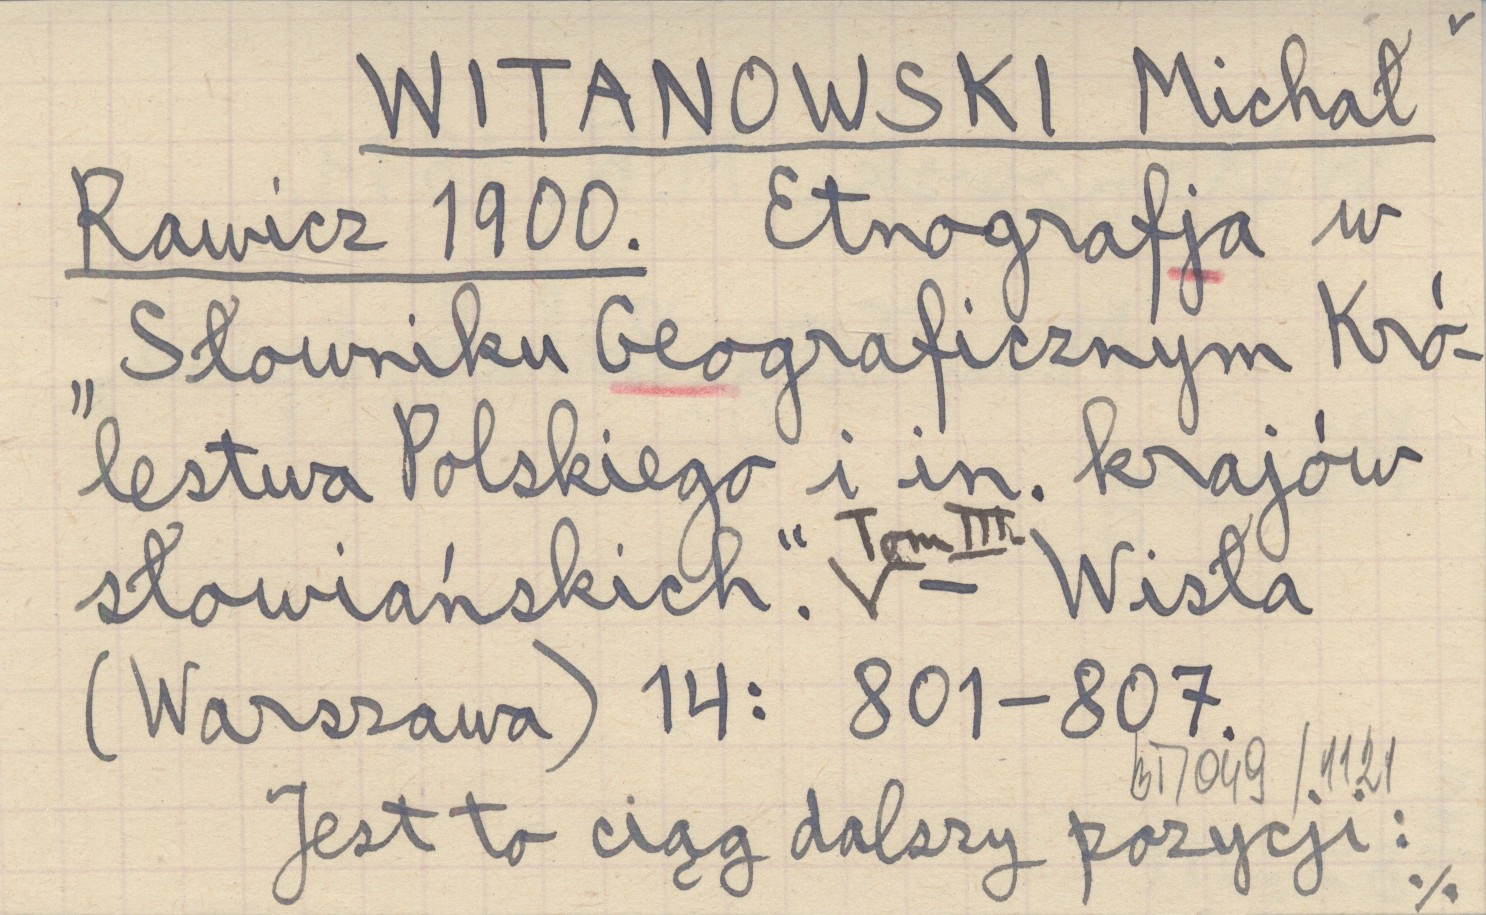 WITANOWSKI Michał
Rawicz 1900. Etnografja w
„Słowniku Geograficznym Kró-
lestwa Polskiego i in. krajów
słowiańskich.“ Tom III. – Wisła
(Warszawa) 14: 801–807.
049/1121
Jest to ciąg dalszy pozycji:
./.